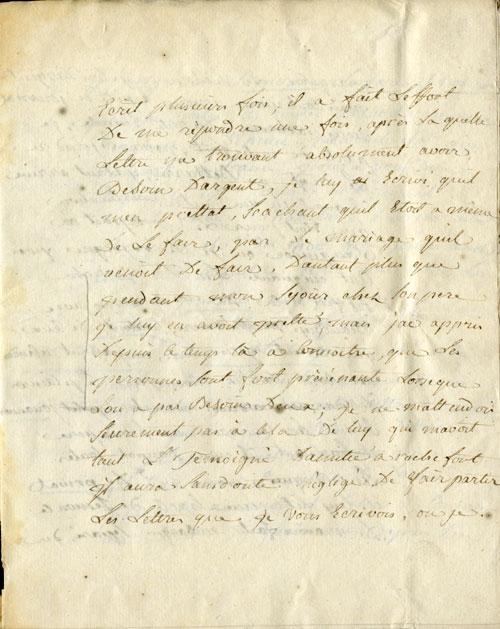 Ecrit plusieurs fois, il a fait Leffort
De me repondre une fois, après La quelle
Lettre me trouvant absolument avoir
Besoin Dargent, je luy Ecrivi, quil
men prettat, Sachant quil Etoit a même
de Le faire, par le mariage quil
venoit De faire, Dautant plus que
pendant mon Sejour chez Son pere
je luy en avoit pretté, mais jai appris
Depuis ce temps là à connoitre, que Les
personnes Sont fort prévenante Lorsque
Lon a pas Besoin Deux, je ne mattendoi
Seurement pas à cela De luy, qui mavoit
tant Temoigné Damitié a
il aura Sans doute négligé De faire partir
Les Lettres que je vous Ecrivois, ou je